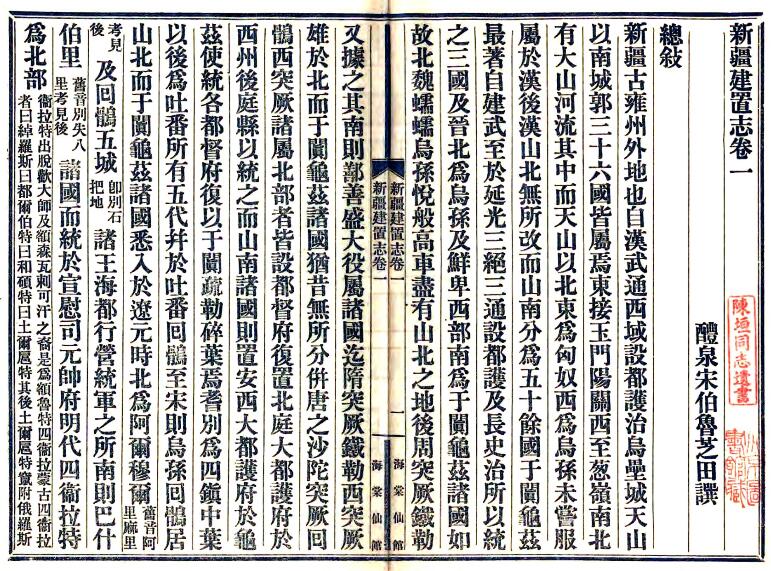 新疆建置志卷一
醴泉宋伯魯芝田譔
陳垣同志遺書
總敍
新疆古雍州外地也自漢武通西域設都護治烏壘城天山
以南城郭三十六國皆屬焉東接玉門陽關西至葱嶺南北
有大山河流其中而天山以北東爲匈奴西爲烏孫未嘗服
屬於漢後漢山北無所改而山南分爲五十餘國于闐龜茲
最著自建武至於延光三絕三通設都護及長史治所以統
之三國及晉北爲烏孫及鮮卑西部南爲于闐龜茲諸國如
故北魏蠕蠕烏孫悅般高車盡有山北之地後周突厥鐵勒
新疆建置志卷一
一
海棠仙館
新疆建置志卷一
海棠仙館
又據之其南則鄯善盛大役屬諸國迄隋突厥鐵勒西突厥
雄於北而于闐龜茲諸國猶昔無所分併唐之沙陀突厥回
鶻西突厥諸屬北部者皆設都督府復置北庭大都護府於
西州後庭縣以統之而山南諸國則置安西大都護府於龜
茲使統各都督府復以于闐疏勒碎葉焉耆別爲四鎭中葉
以後爲吐番所有五代幷於吐番回鶻至宋則烏孫回鶻居
山北而于闐龜茲諸國悉入於遼元時北爲阿爾穆爾舊音阿里麻里
考見後及回鶻五城卽別石把地諸王海都行營統軍之所南則巴什
伯里舊音別失八里考見後諸國而統於宣慰司元帥府明代四衞拉特
爲北部衞拉特出脫歡大師及額森瓦刺可汗之裔是爲額魯特四衞拉蒙古四衞拉者曰綽羅斯曰都爾伯特曰和碩特曰土爾扈特其後土爾扈特竄附俄羅斯